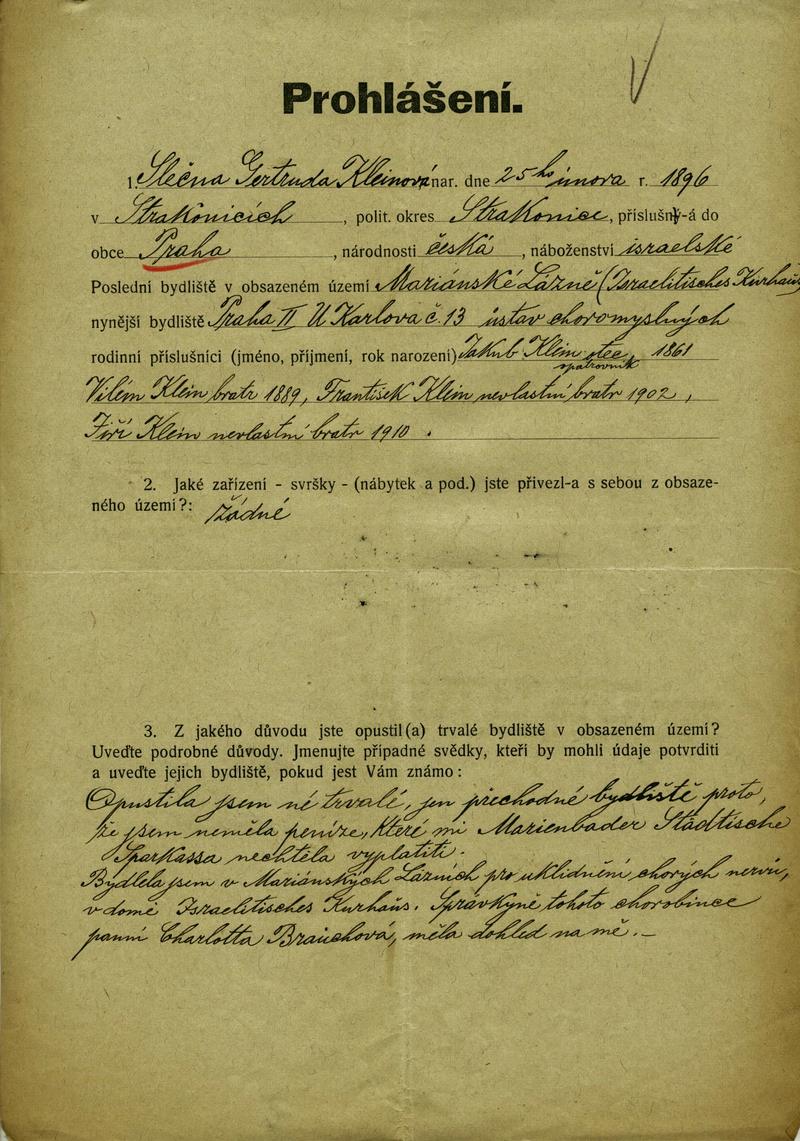 Prohlášení.
1. Slečna Gertruda Kleinová nar. dne 25ho února r. 1896
v Strakonicích, polit. okres Strakonice, příslušný-á do
obce Praha, národnosti česká, náboženství israelské
Poslední bydliště v obsazeném území Mariánské Lázně (Israelitisches Kurhaus
nynější bydliště Praha II U Karlova č. 13 ústav choromyslných
rodinní příslušníci (jméno, příjmení, rok narození) Jakub Klein otec, 1861
opatrovník
Vilém Klein bratr 1889, František Klein nevlastní bratr 1902,
Jiří Klein nevlastní bratr 1910.
2. Jaké zařízení - svršky - (nábytek a pod.) jste přivezl-a s sebou z obsaze-
ného území?: žádné
3. Z jakého důvodu jste opustil(a) trvalé bydliště v obsazeném území?
Uveďte podrobné důvody. Jmenujte případné svědky, kteří by mohli údaje potvrditi
a uveďte jejich bydliště, pokud jest Vám známo:
Opustila jsem né trvalé, jen přechodné bydliště proto,
že jsem neměla peníze, které mi Marienbader Städtische
Sparkassa nechtěla vyplatiti.
Bydlela jsem v Mariánských Lázních pro uklidnění chorých nervů,
v domě Israelitisches Kurhaus. Správkyně tohoto chorobince
paní Charlotta Brauchová, měla dohled na mě. –